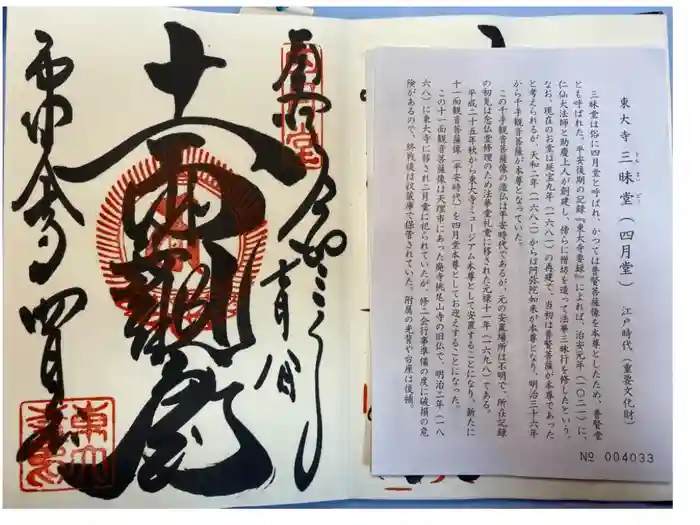 東大寺 三昧堂（四月堂） 江戸時代（重要文化財）
三昧堂は俗に四月堂と呼ばれ、かつては普賢菩薩像を本尊としたため、普賢堂
とも呼ばれた。平安後期の記録『東大寺要録』によれば、治安元年（一〇二一）に、
仁仙大法師と助慶上人が創建し、傍らに僧坊を造って法華三昧行を修したという。
なお、現在のお堂は延宝九年（一六八一）の再建で、当初は普賢菩薩が本尊であった
と考えられるが、天和二年（一六八二）からは阿弥陀如来が本尊となり、明治三十六年
から千手観音菩薩が本尊となっていた。
この千手観音菩薩像の造仏は平安時代であるが、元の安置場所は不明で、所在記録
の初見は念仏堂修理のため法華堂礼堂に移された元禄十一年（一六九八）である。
平成二十五年秋から東大寺ミュージアム本尊として安置することになり、新たに
十一面観音菩薩像（平安時代）を四月堂本尊としてお迎えすることになった。
この十一面観音菩薩像は天理市にあった廃寺桃尾山寺の旧仏で、明治二年（一八
六八）に東大寺に移され二月堂に祀られていたが、修二会行事準備の度に破損の危
険があるので、終戦後は収蔵庫で保管されていた。附属の光背や台座は後補。
№ 004033
十一面観音
四月堂